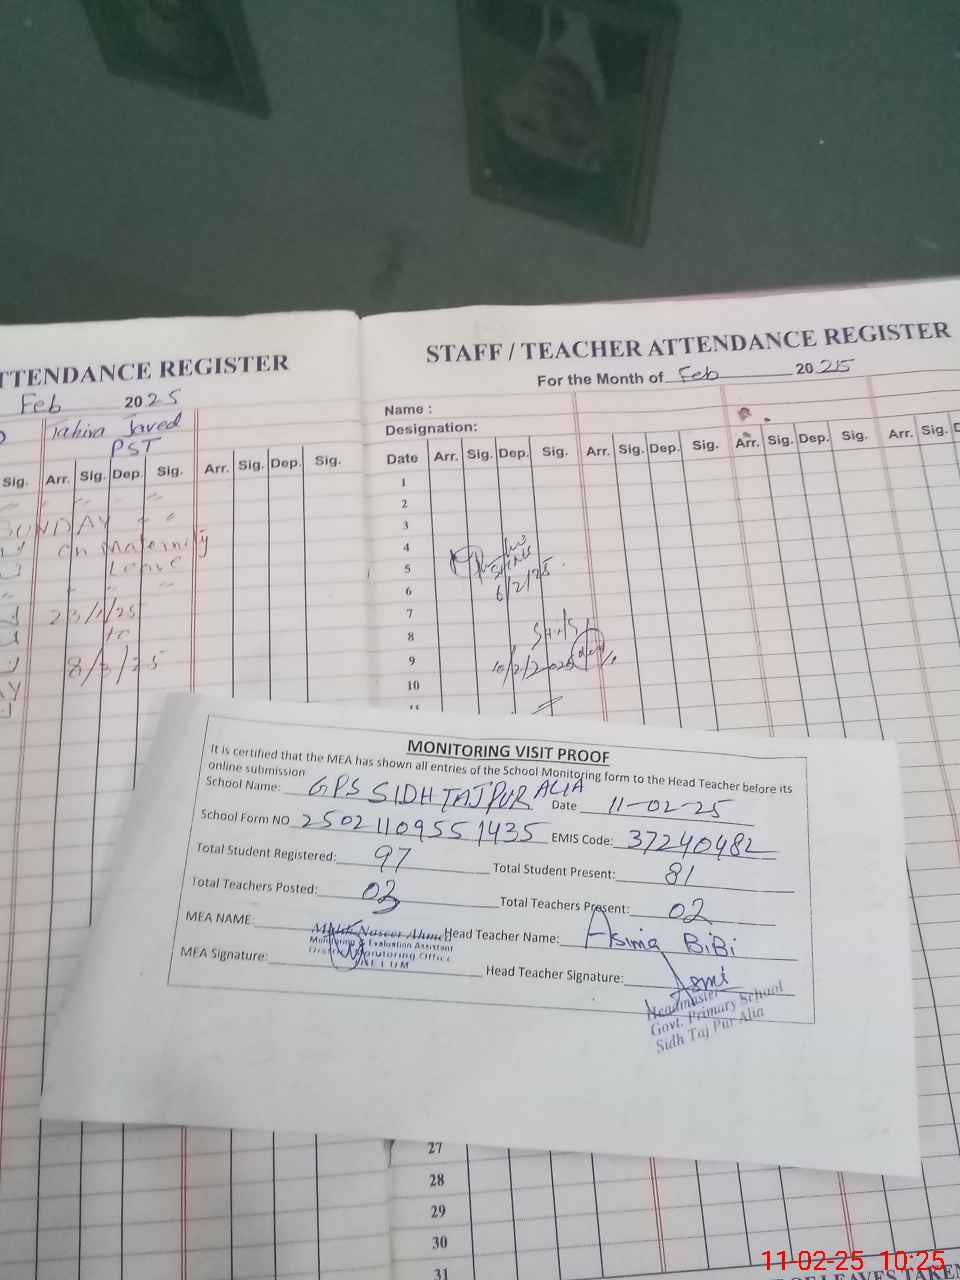 TTENDANCE REGISTER
Feb 2025
Tahira Javed
PST
Sig. Arr. Sig. Dep. Sig. Arr. Sig. Dep. Sig.
SUNDAY
On Maternity
Leave
23/1/25
to
8/3/25
STAFF / TEACHER ATTENDANCE REGISTER
For the Month of Feb 2025
Name :
Designation:
Date Arr. Sig. Dep. Sig. Arr. Sig. Dep. Sig. Arr. Sig. Dep. Sig. Arr. Sig. D
1
2
3
4
5
6 6/2/25.
7
8
9 10/2/2025
10
MONITORING VISIT PROOF
It is certified that the MEA has shown all entries of the School Monitoring form to the Head Teacher before its
online submission
School Name: GPS SIDH TAJPUR ALIA Date 11-02-25
School Form NO 25021109551435 EMIS Code: 37240482
Total Student Registered: 97 Total Student Present: 81
Total Teachers Posted: 03 Total Teachers Present: 02
MEA NAME: Naseer Ahmed Head Teacher Name: Asima BiBi
Monitoring & Evaluation Assistant
District Monitoring Office
JHELUM
MEA Signature: Head Teacher Signature:
Headmaster
Govt. Primary School
Sidh Taj Pur Alia
27
28
29
30
31
11-02-25 10:25
LEAVES TAKEN